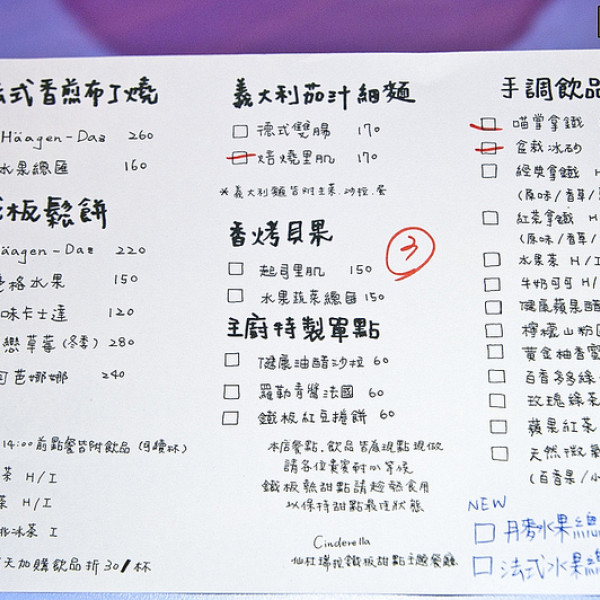 法式香煎布丁燒
Häagen-Daz 260
水果總匯 160
板鬆餅
Häagen-Daz 220
格水果 150
味卡士達 120
戀草莓(冬季) 280
可芭娜娜 240
14:00前點餐皆附飲品(可續杯)
茶 H/I
茶 H/I
冰茶 I
天加購飲品折30/杯
義大利茄汁細麵
□ 德式雙腸 170
□ 焙燒里肌 170
※義大利麵皆附主菜.沙拉.蛋
香烤貝果
③
□ 起司里肌 150
□ 水果蔬菜總匯 150
主廚特製單點
□ 健康油醋沙拉 60
□ 羅勒青醬法國 60
□ 鐵板紅豆捲餅 60
本店餐點.飲品皆為現點現做
請各位貴賓耐心等候
鐵板鬆甜點請趁熱食用
以保持甜點最佳狀態
Cinderella
仙杜瑞拉鐵板甜點主題餐廳
手調飲品
□ 喵掌拿鐵
□ 盆栽冰砂
□ 經典拿鐵 H
(原味/香草/
□ 紅茶拿鐵 H
(原味/香草/
□ 水果茶 H/I
□ 牛奶可可 H/
□ 健康蘋果醋
□ 檸檬山粉圓
□ 黃金柚香蜜
□ 百香多多綠
□ 玫瑰綠茶
□ 蘋果紅茶
□ 天然微氣
(百香果/
NEW
□ 丹麥水果總
□ 法式水果總